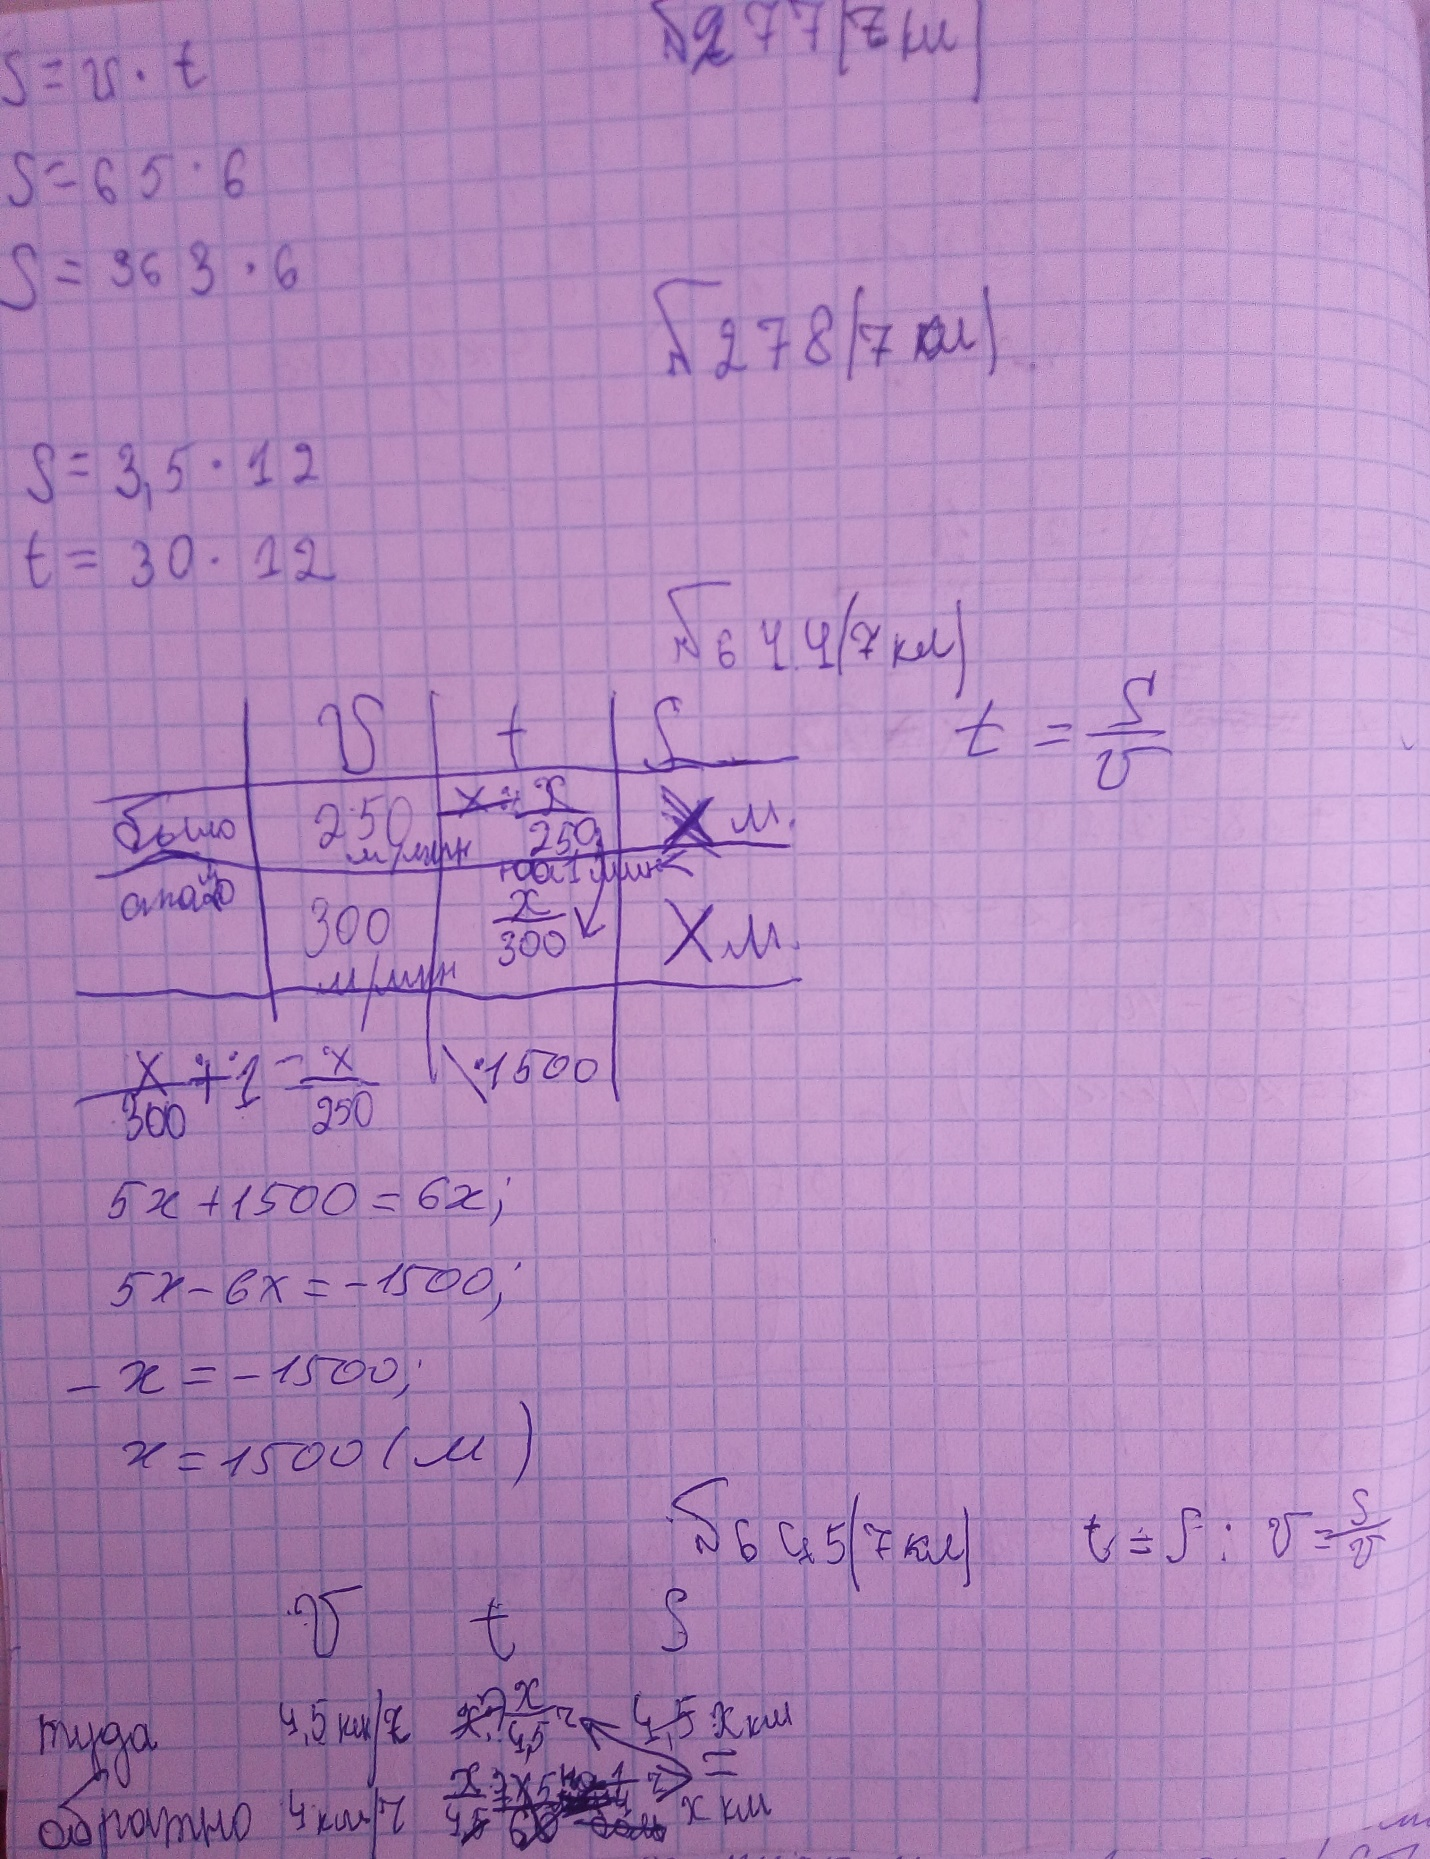 №277(7кл)
S = v · t
S = 65 · 6
S = 363 · 6
№278(7кл)
S = 3,5 · 12
t = 30 · 12
№644(7кл)
v t S t = S/v
было 250 м/мин x/250 X м.
на 1 мин <
стало 300 м/мин x/300 X м.
x/300 + 1 = x/250 \ · 1500
5x + 1500 = 6x;
5x - 6x = -1500;
- x = -1500;
x = 1500 (м)
№645(7кл) t = S : v = S/v
v t S
туда 4,5 км/ч x/4,5 ч x км
=
обратно 4 км/ч x км